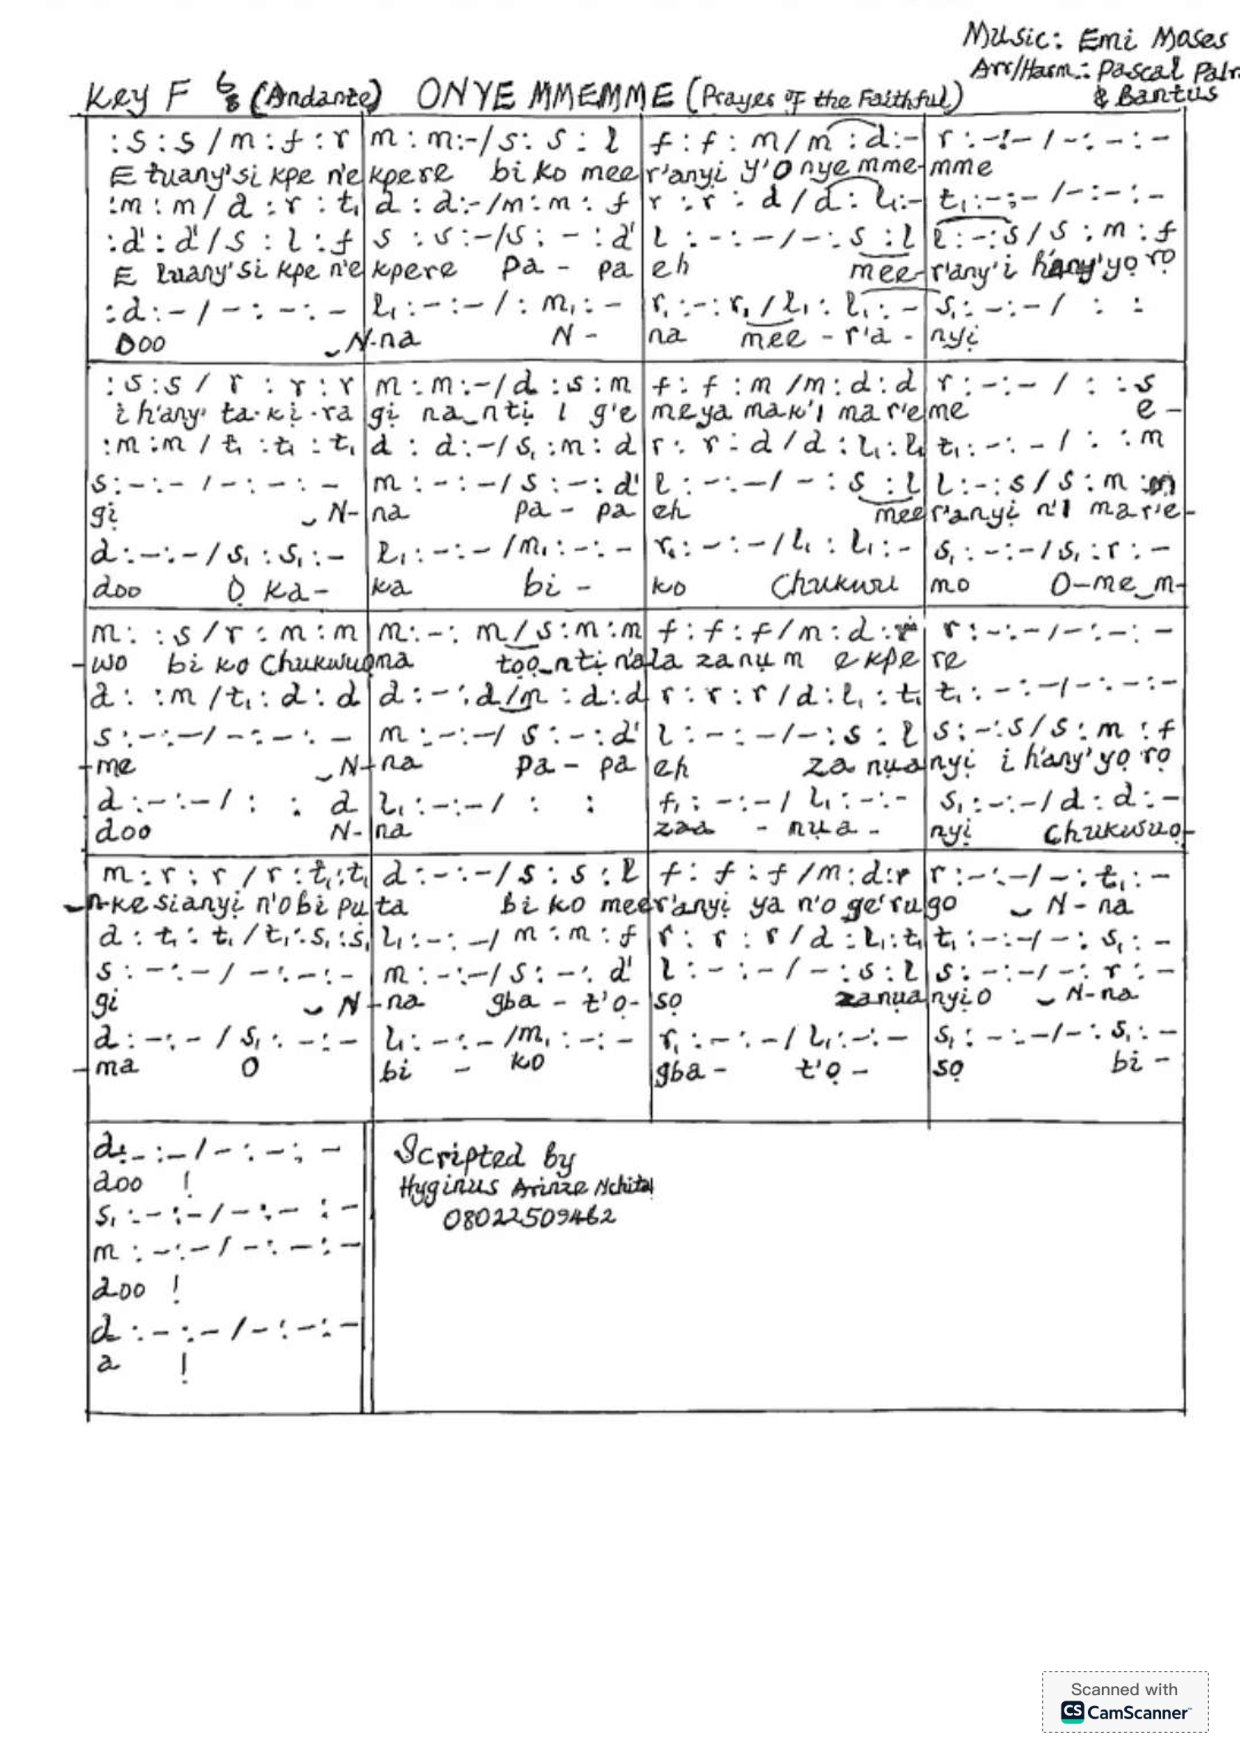 Music: Emi Moses
Arr/Harm.: Pascal Palm
& Bantus
Key F 6/8 (Andante) ONYE MMEMME (Prayes of the Faithful)
:s:s/m:f:r | m:m:-/s:s:l | f:f:m/m:d:- | r:-:-/-:-:-
E tuany'si kpe n'e kpere bi ko mee r'anyi y'O nye mme-mme
:m:m/d:r:t₁ | d:d:-/m:m:f | r:r:d/d:l₁:- | t₁:-:-/-:-:-
:d':d'/s:l:f | s:s:-/s:-:d' | l:-:-/-:s:l | l:-:s/s:m:f
E tuany'si kpe n'e kpere pa - pa eh mee-r'any'i hany'yọ rọ
:d:-/-:-:- | l₁:-:-/:m₁:- | r₁:-:r₁/l₁:l₁:- | s₁:-:-/ : :
Doo N-na N - na mee - r'a - nyị
:s:s/r:r:r | m:m:-/d:s:m | f:f:m/m:d:d | r:-:-/ : :s
i hany' ta-kị-ra gị na_ntị I g'e meya mak'I mar'e me e -
:m:m/t₁:t₁:t₁ | d:d:-/s₁:m:d | r:r:d/d:l₁:l₁ | t₁:-:-/ : :m
s:-:-/-:-:- | m:-:-/s:-:d' | l:-:-/-:s:l | l:-:s/s:m:m
gị N-na pa - pa eh mee r'anyị n'I mar'e-
d:-:-/s₁:s₁:- | l₁:-:-/m₁:-:- | r₁:-:-/l₁:l₁:- | s₁:-:-/s₁:r:-
doo Ọ ka- ka bi - ko Chukwu mo O-me_m-
m: :s/r:m:m | m:-:m/s:m:m | f:f:f/m:d:r | r:-:-/-:-:-
-wo bi ko Chukwuọma tọọ_ntị n'ala zanụ m ekpe re
d: :m/t₁:d:d | d:-:d/m:d:d | r:r:r/d:l₁:t₁ | t₁:-:-/-:-:-
s:-:-/-:-:- | m:-:-/s:-:d' | l:-:-/-:s:l | s:-:s/s:m:f
-me N-na pa - pa eh za nụa nyị i hany'yọ rọ
d:-:-/ : : d | l₁:-:-/ : : | f₁:-:-/l₁:-:- | s₁:-:-/d:d:-
doo N-na zaa - nụa - nyị Chukwuọ-
m:r:r/r:t₁:t₁ | d:-:-/s:s:l | f:f:f/m:d:r | r:-:-/-:t₁:-
n-ke sianyị n'obi pụ ta bi ko mee r'anyị ya n'o ge'ru go N-na
d:t₁:t₁/t₁:s₁:s₁ | l₁:-:-/m:m:f | r:r:r/d:l₁:t₁ | t₁:-:-/-:s₁:-
s:-:-/-:-:- | m:-:-/s:-:d' | l:-:-/-:s:l | s:-:-/-:r:-
gị N-na gba - t'ọ- sọ zanụa nyị o N-na
d:-:-/s₁:-:- | l₁:-:-/m₁:-:- | r₁:-:-/l₁:-:- | s₁:-:-/-:s₁:-
-ma O bi - ko gba - t'ọ - sọ bi -
d:-:-/-:-:-
doo !
s₁:-:-/-:-:-
m:-:-/-:-:-
doo !
d:-:-/-:-:-
a !
Scripted by
Hyginus Arinze
08022509462
Scanned with
CS CamScanner